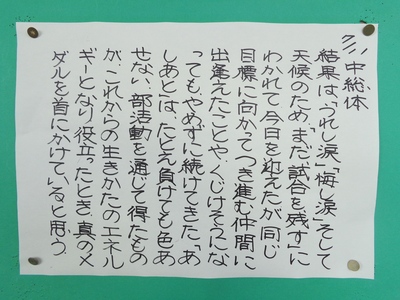 7/11 中総体
結果は、「うれし涙」「悔し涙」そして
天候のため、「まだ試合を残す」に
わかれて今日を迎えたが、同じ
目標に向かってつき進む仲間に
出逢えたことや、くじけそうにな
っても、やめずに続けてきた。「あ
しあと」は、たとえ負けても色あ
せない。部活動を通じて得たもの
が、これからの生きかたのエネル
ギーとなり役立ったとき、真のメ
ダルを首にかけていると思う。